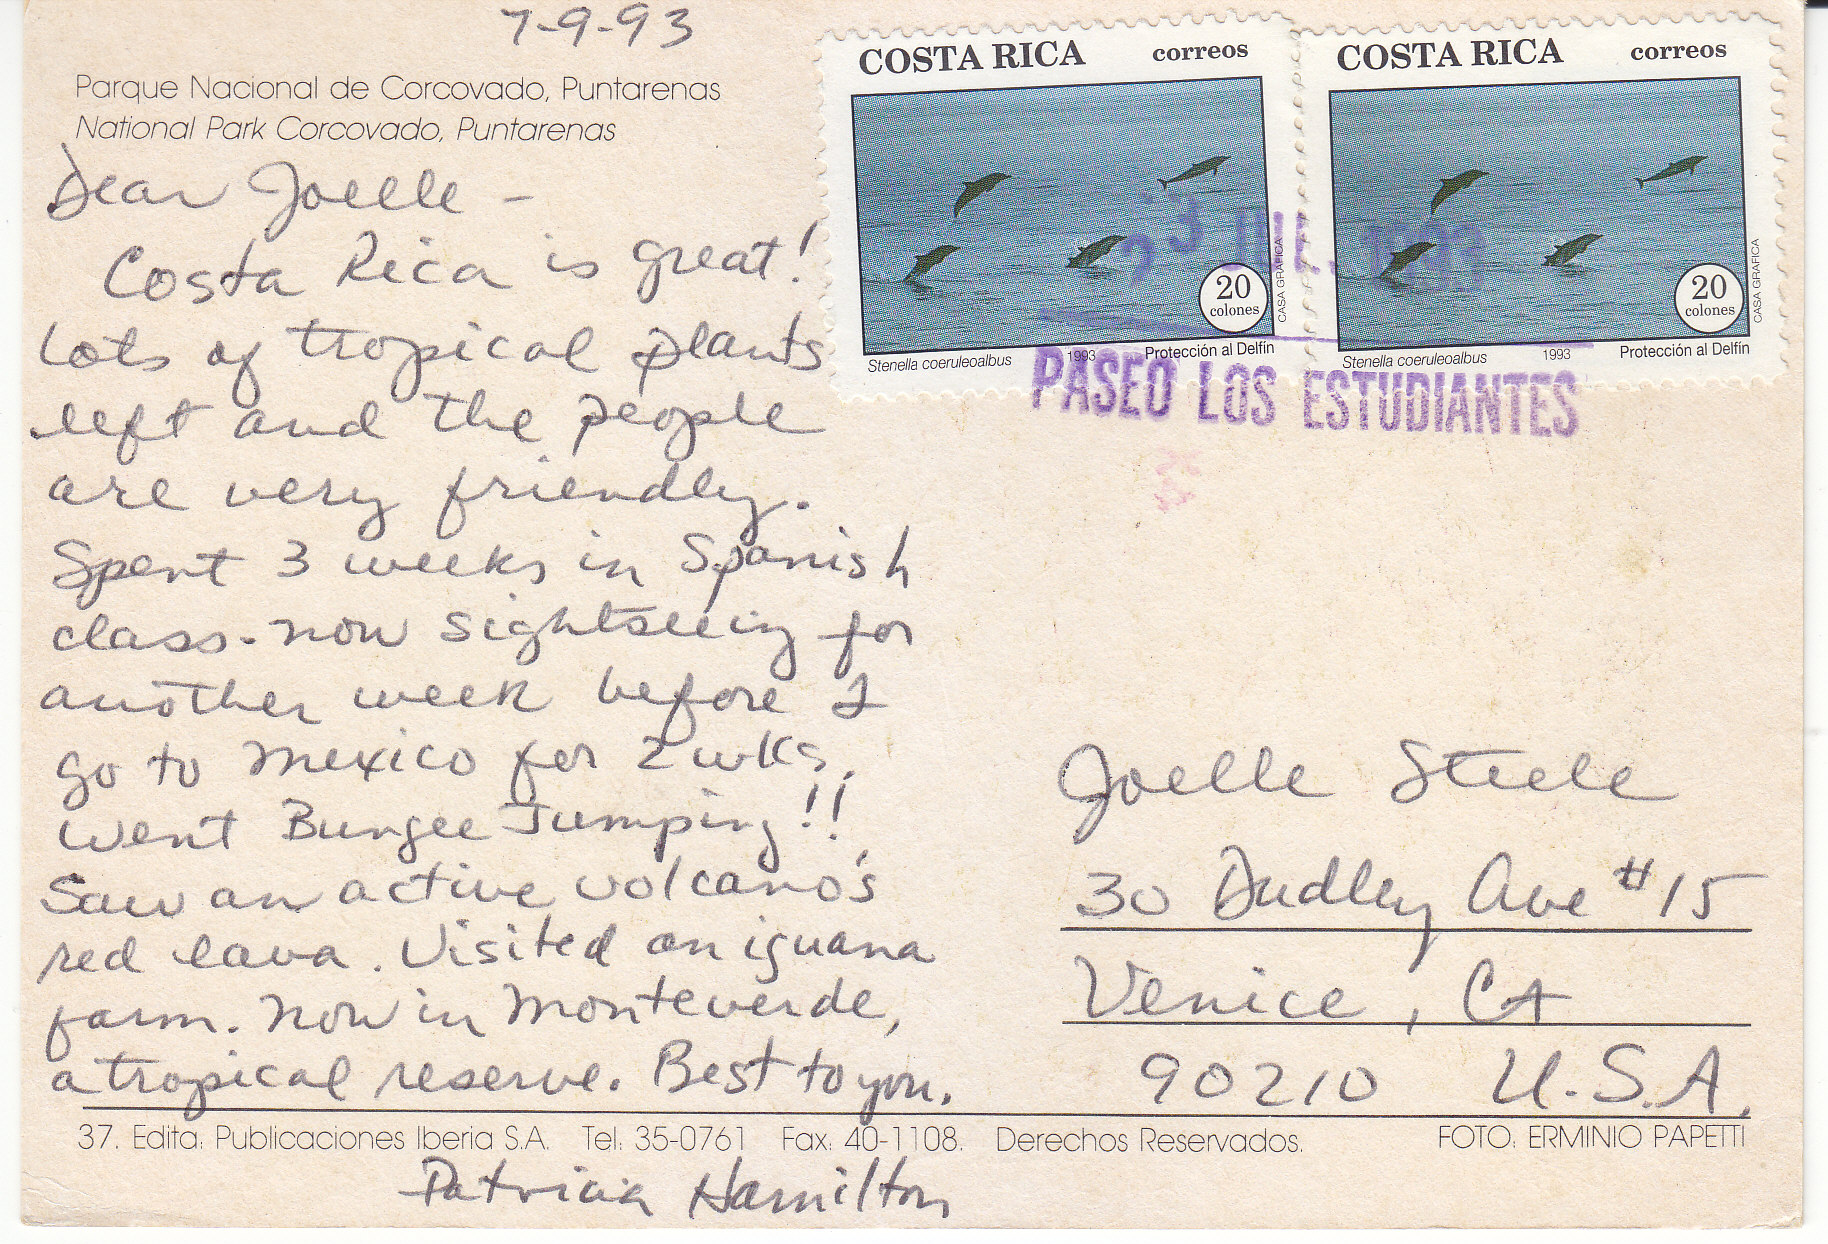 7-9-93
Parque Nacional de Corcovado, Puntarenas
National Park Corcovado, Puntarenas
Dear Joelle -
Costa Rica is great!
Lots of tropical plants
left and the people
are very friendly.
Spent 3 weeks in Spanish
class - now sightseeing for
another week before I
go to Mexico for 2 wks.
Went Bungee Jumping!!
Saw an active volcano's
red lava. Visited an iguana
farm. Now in Monteverde,
a tropical reserve. Best to you.
Patricia Hamilton
COSTA RICA correos
20
colones
CASA GRAFICA
Stenella coeruleoalbus 1993 Protección al Delfín
COSTA RICA correos
20
colones
CASA GRAFICA
Stenella coeruleoalbus 1993 Protección al Delfín
JUL. 
PASEO LOS ESTUDIANTES
Joelle Steele
30 Dudley Ave #15
Venice, CA
90210 U.S.A.
37. Edita: Publicaciones Iberia S.A. Tel: 35-0761 Fax: 40-1108. Derechos Reservados. FOTO: ERMINIO PAPETTI